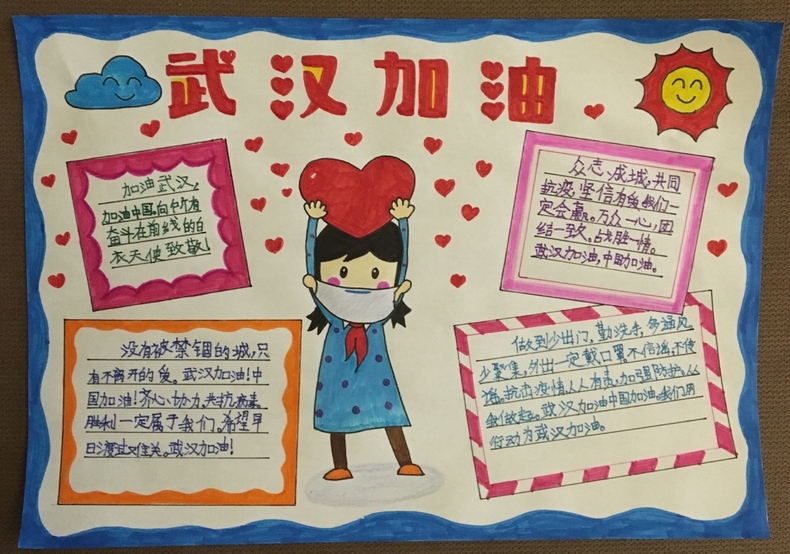 武汉加油
加油武汉,
加油中国。向所有
奋斗在前线的白
衣天使致敬。
众志成城,共同
抗疫。坚信有爱我们一
定会赢。万众一心,团
结一致。战胜一情。
武汉加油,中国加油。
没有被禁锢的城,只
有不离开的爱。武汉加油!中
国加油!齐心协力,共抗病毒。
胜利一定属于我们。希望早
日渡过难关。武汉加油!
做到少出门,勤洗手,多通风
少聚集,外出一定戴口罩不信谣,不传
谣。抗击疫情,人人有责,加强防护。从
我做起。武汉加油中国加油。我们用
行动为武汉加油。